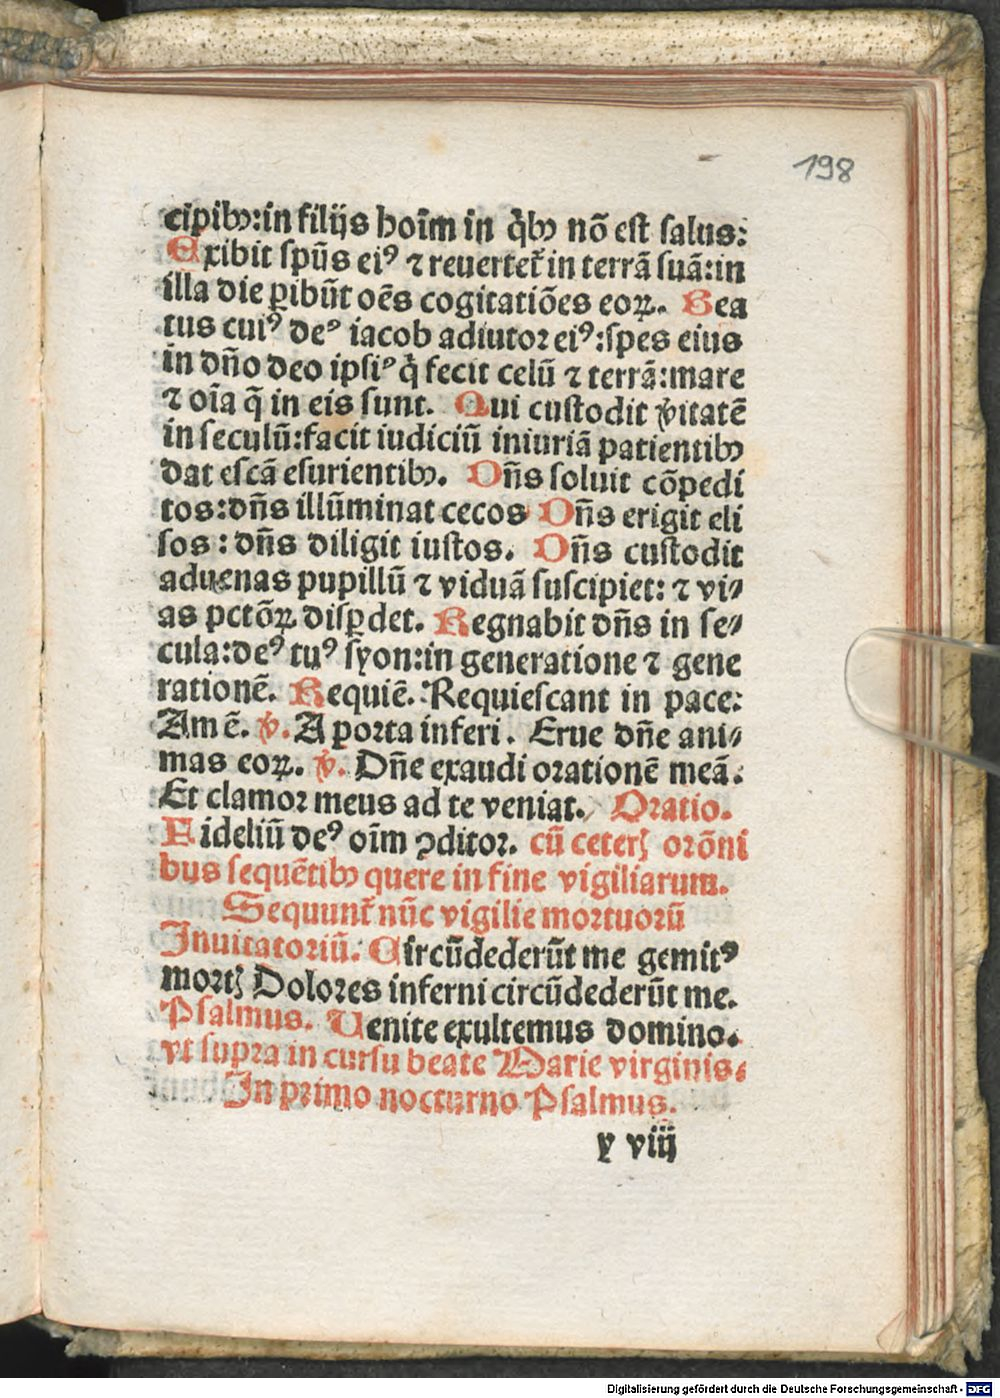 198
cipibꝫ:in filijs hoīm in q̇bꝫ nō est salus:
Exibit spūs eiꝰ ⁊ reuertet̄ in terrā suā:in
illa die ꝑibūt oēs cogitatiōes eoꝝ. Bea
tus cuiꝰ deꝰ iacob adiutor eiꝰ:spes eius
in dn̄o deo ipsiꝰ q̇ fecit celū ⁊ terrā:mare
⁊ oīa q̄ in eis sunt. Qui custodit v̓itatē
in seculū:facit iudiciū iniuriā patientibꝫ
dat escā esurientibꝫ. Dn̄s soluit cōpedi
tos:dn̄s illūminat cecos Dn̄s erigit eli
sos : dn̄s diligit iustos. Dn̄s custodit
aduenas pupillū ⁊ viduā suscipiet: ⁊ vi⸗
as pctōꝝ disꝑdet. Regnabit dn̄s in se⸗
cula:deꝰ tuꝰ syon:in generatione ⁊ gene
rationē. Requiē. Requiescant in pace:
Amē. ℣. A porta inferi. Erue dn̄e ani⸗
mas eoꝝ. ℣. Dn̄e exaudi orationē meā.
Et clamor meus ad te veniat. Oratio.
Fideliū deꝰ oīm ꝯditor. cū ceterꝭ orōni
bus sequētibꝫ quere in fine vigiliarum.
Sequunt̄ nūc vigilie mortuorū
Inuitatoriū. Circūdederūt me gemitꝰ
mortꝭ Dolores inferni circūdederūt me.
Psalmus. Uenite exultemus domino.
vt supra in cursu beate Marie virginis.
In primo nocturno Psalmus.
y viij
Digitalisierung gefördert durch die Deutsche Forschungsgemeinschaft - DFG